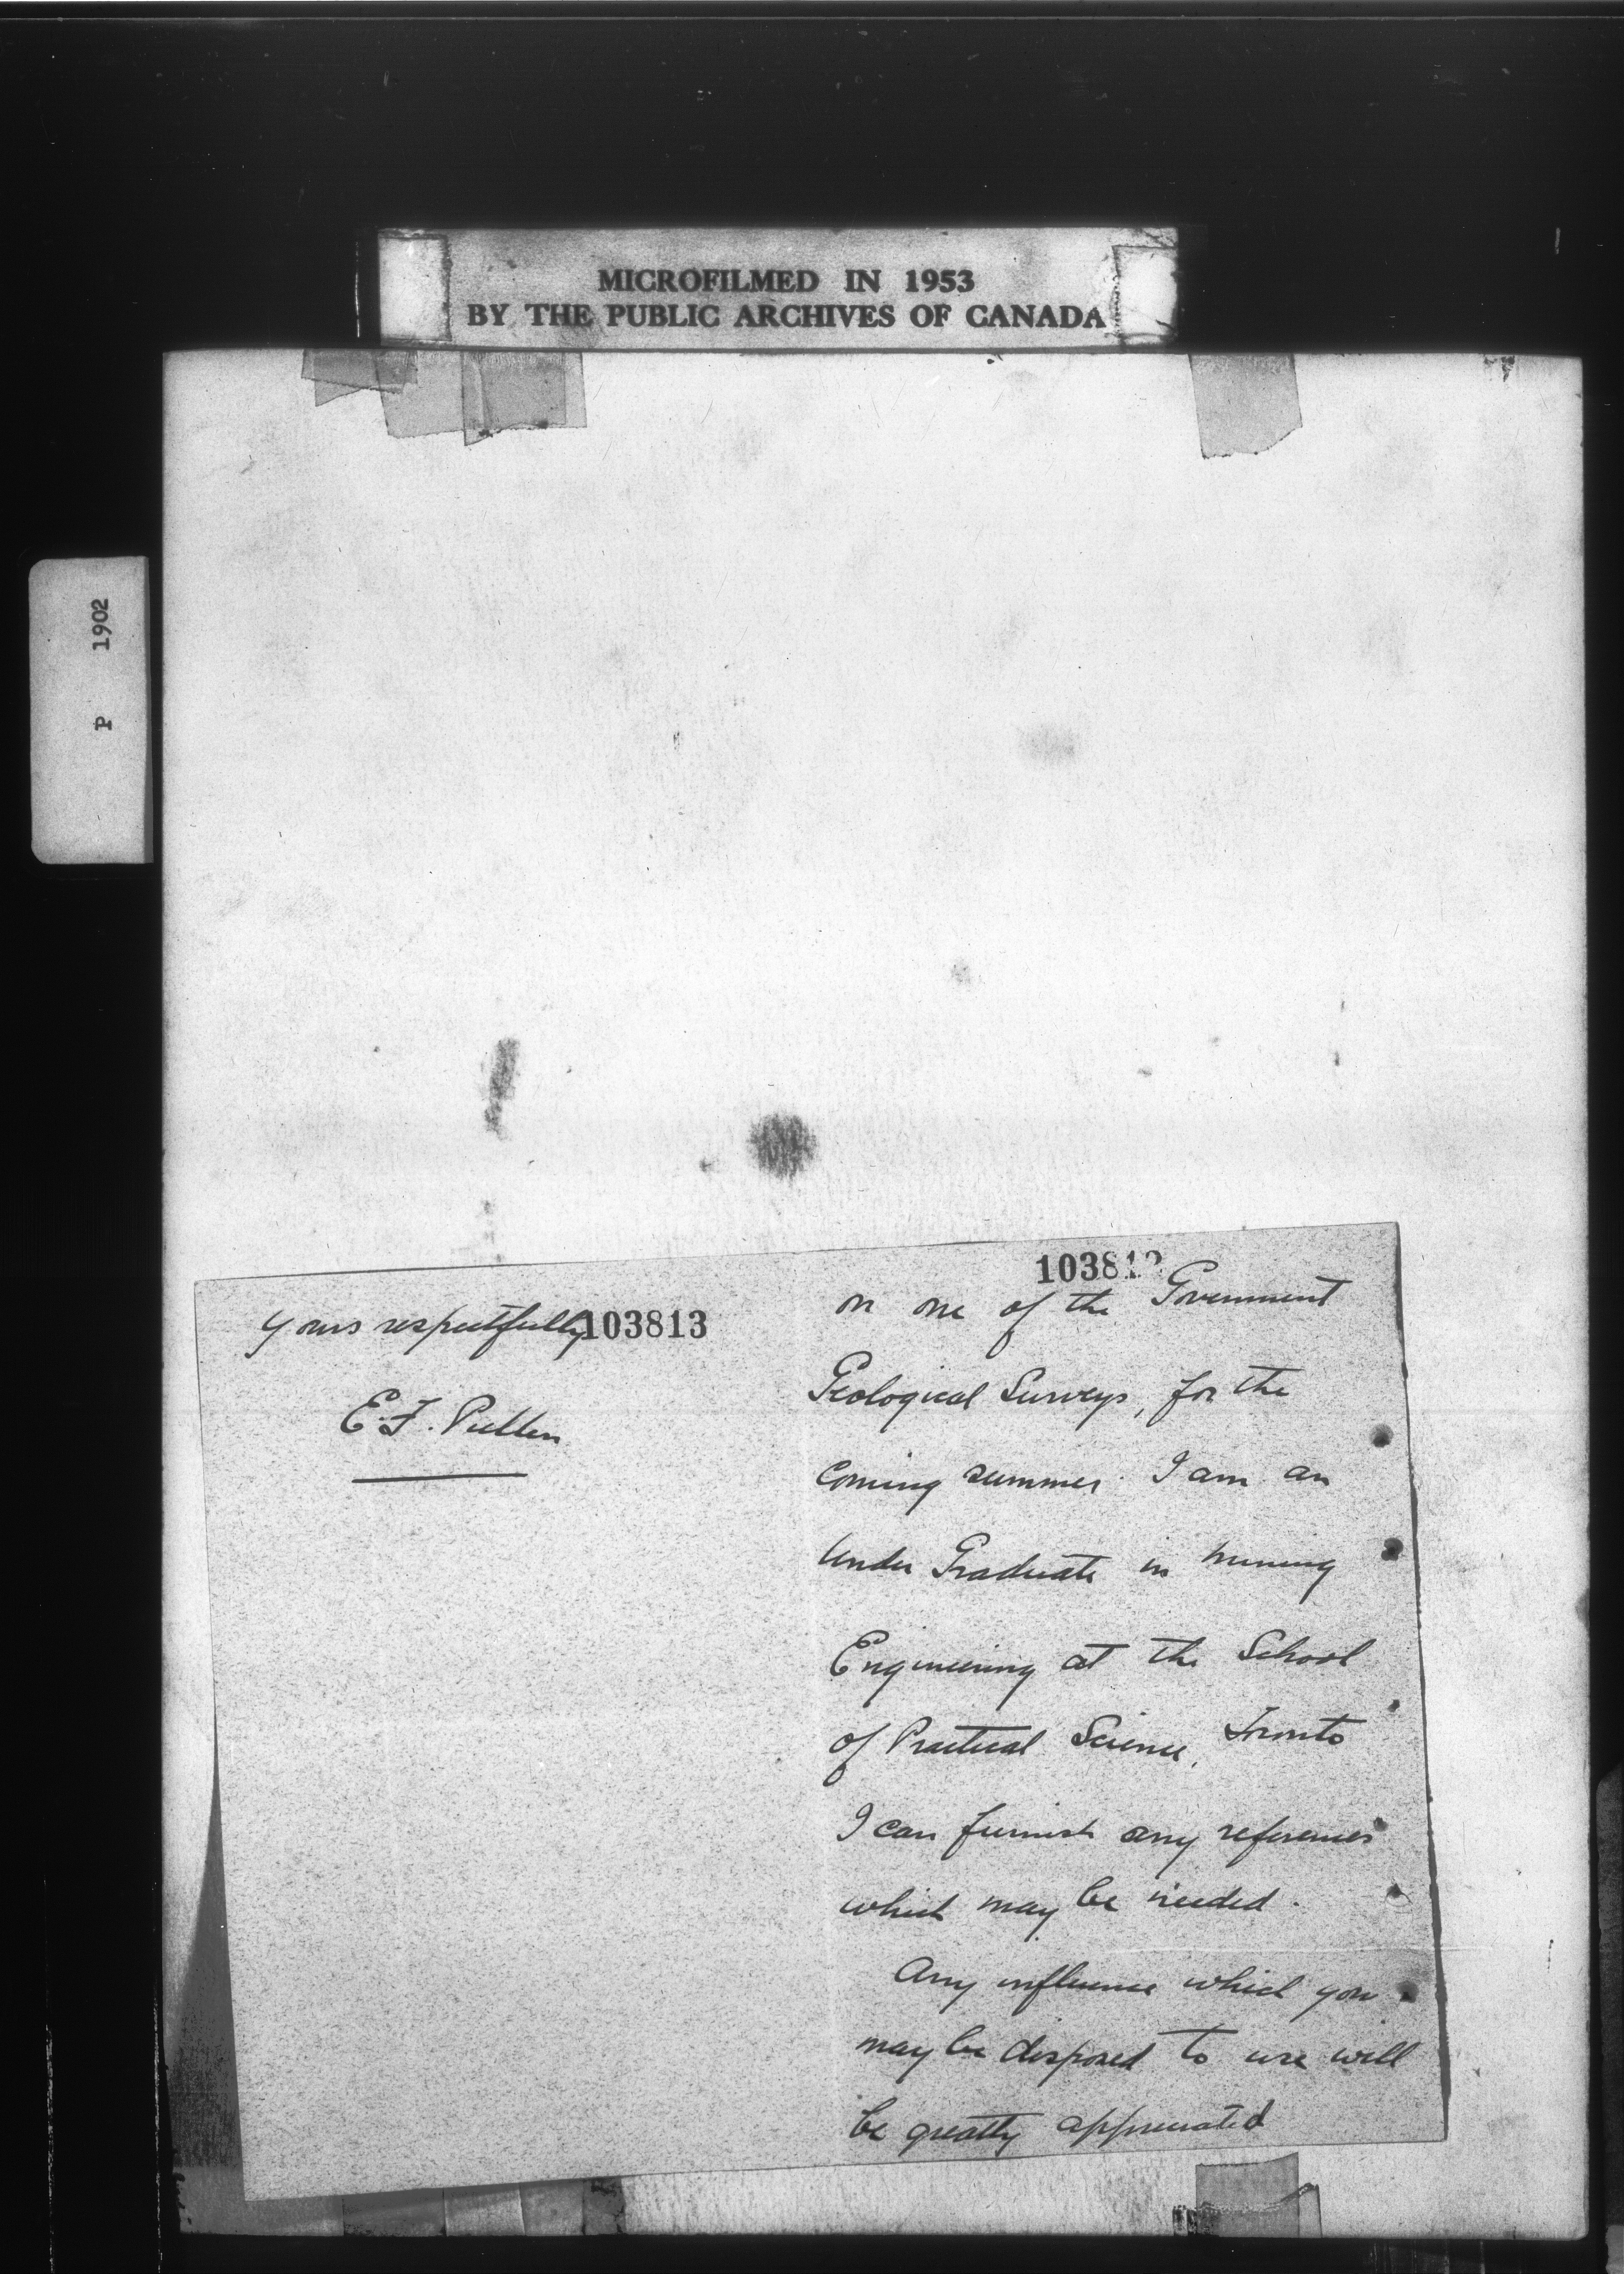 MICROFILMED IN 1953
BY THE PUBLIC ARCHIVES OF CANADA
P 1902
yours respectfully
103813
E. F. Pullen
10381
on one of the Government
Geological Surveys, for the
coming summer. I am an
Under Graduate in mining
Engineering at the School
of Practical Science, Toronto
I can furnish any references
which may be needed.
Any influence which you
may be disposed to use will
be greatly appreciated